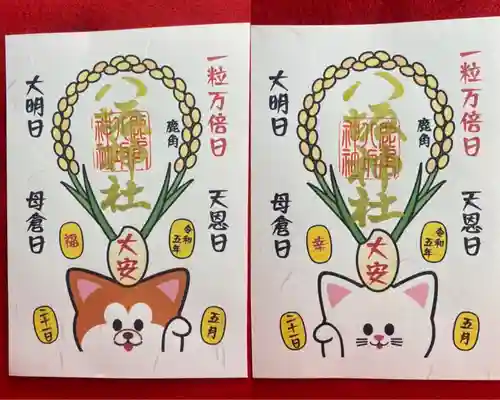 一粒万倍日
八坂神社
大明日
鹿角
天恩日
母倉日
令和五年
福
大安
五月
二十一日
一粒万倍日
八坂神社
大明日
鹿角
天恩日
母倉日
令和五年
幸
大安
五月
二十一日